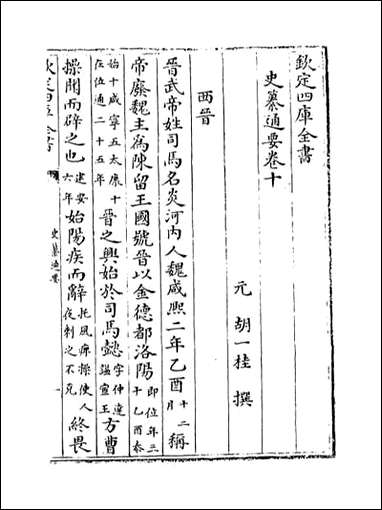 欽定四庫全書
史纂通要卷十
元 胡一桂 撰
西晉
晉武帝姓司馬名炎河内人魏咸熙二年乙酉十二月稱
帝廢魏主為陳留王國號晉以金德都洛陽即位年三十乙酉泰
始十咸寧五太康十在位通二十五年晉之興始於司馬懿字仲達諡宣王方曹
操聞而辟之也建安六年始陽疾而辭托風痹操使人夜刺之不死終畏
史纂通要